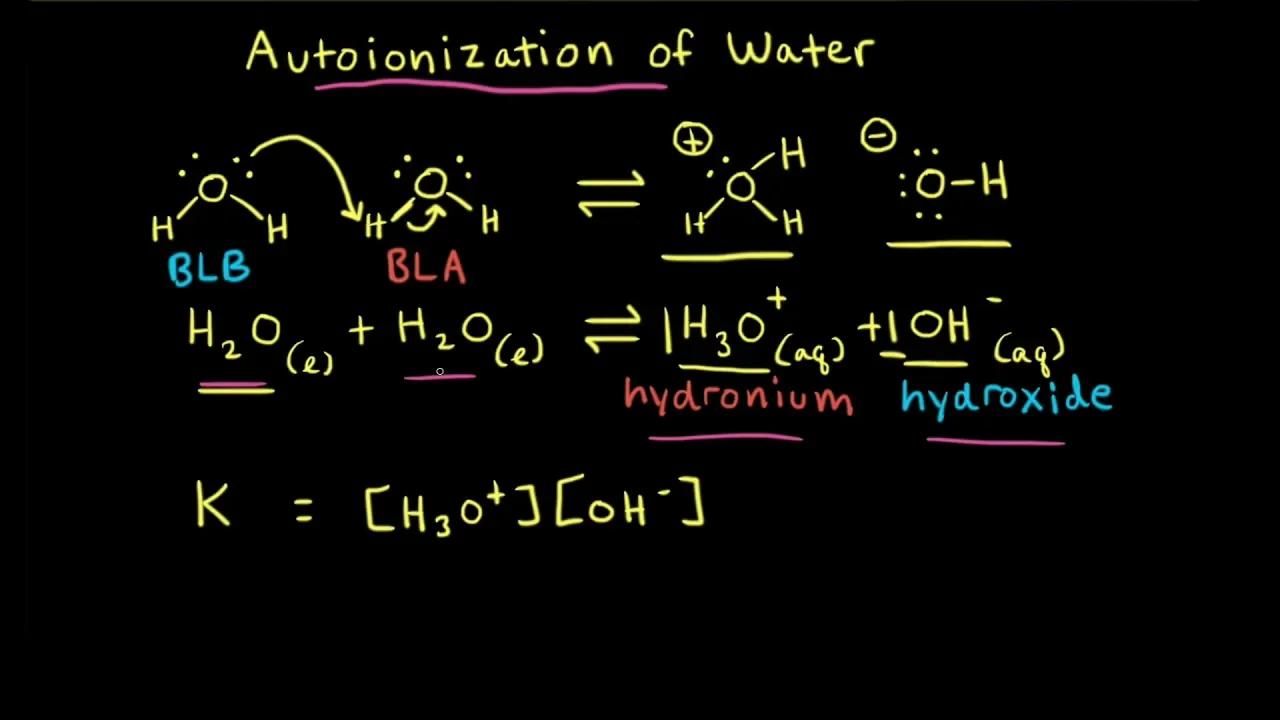 Autoionization of Water
H O H H O H ⇌ ⊕ H O H H ⊖ O-H
BLB BLA
H₂O(l) + H₂O(l) ⇌ 1H₃O⁺(aq) + 1OH⁻(aq)
hydronium hydroxide
K = [H₃O⁺][OH⁻]